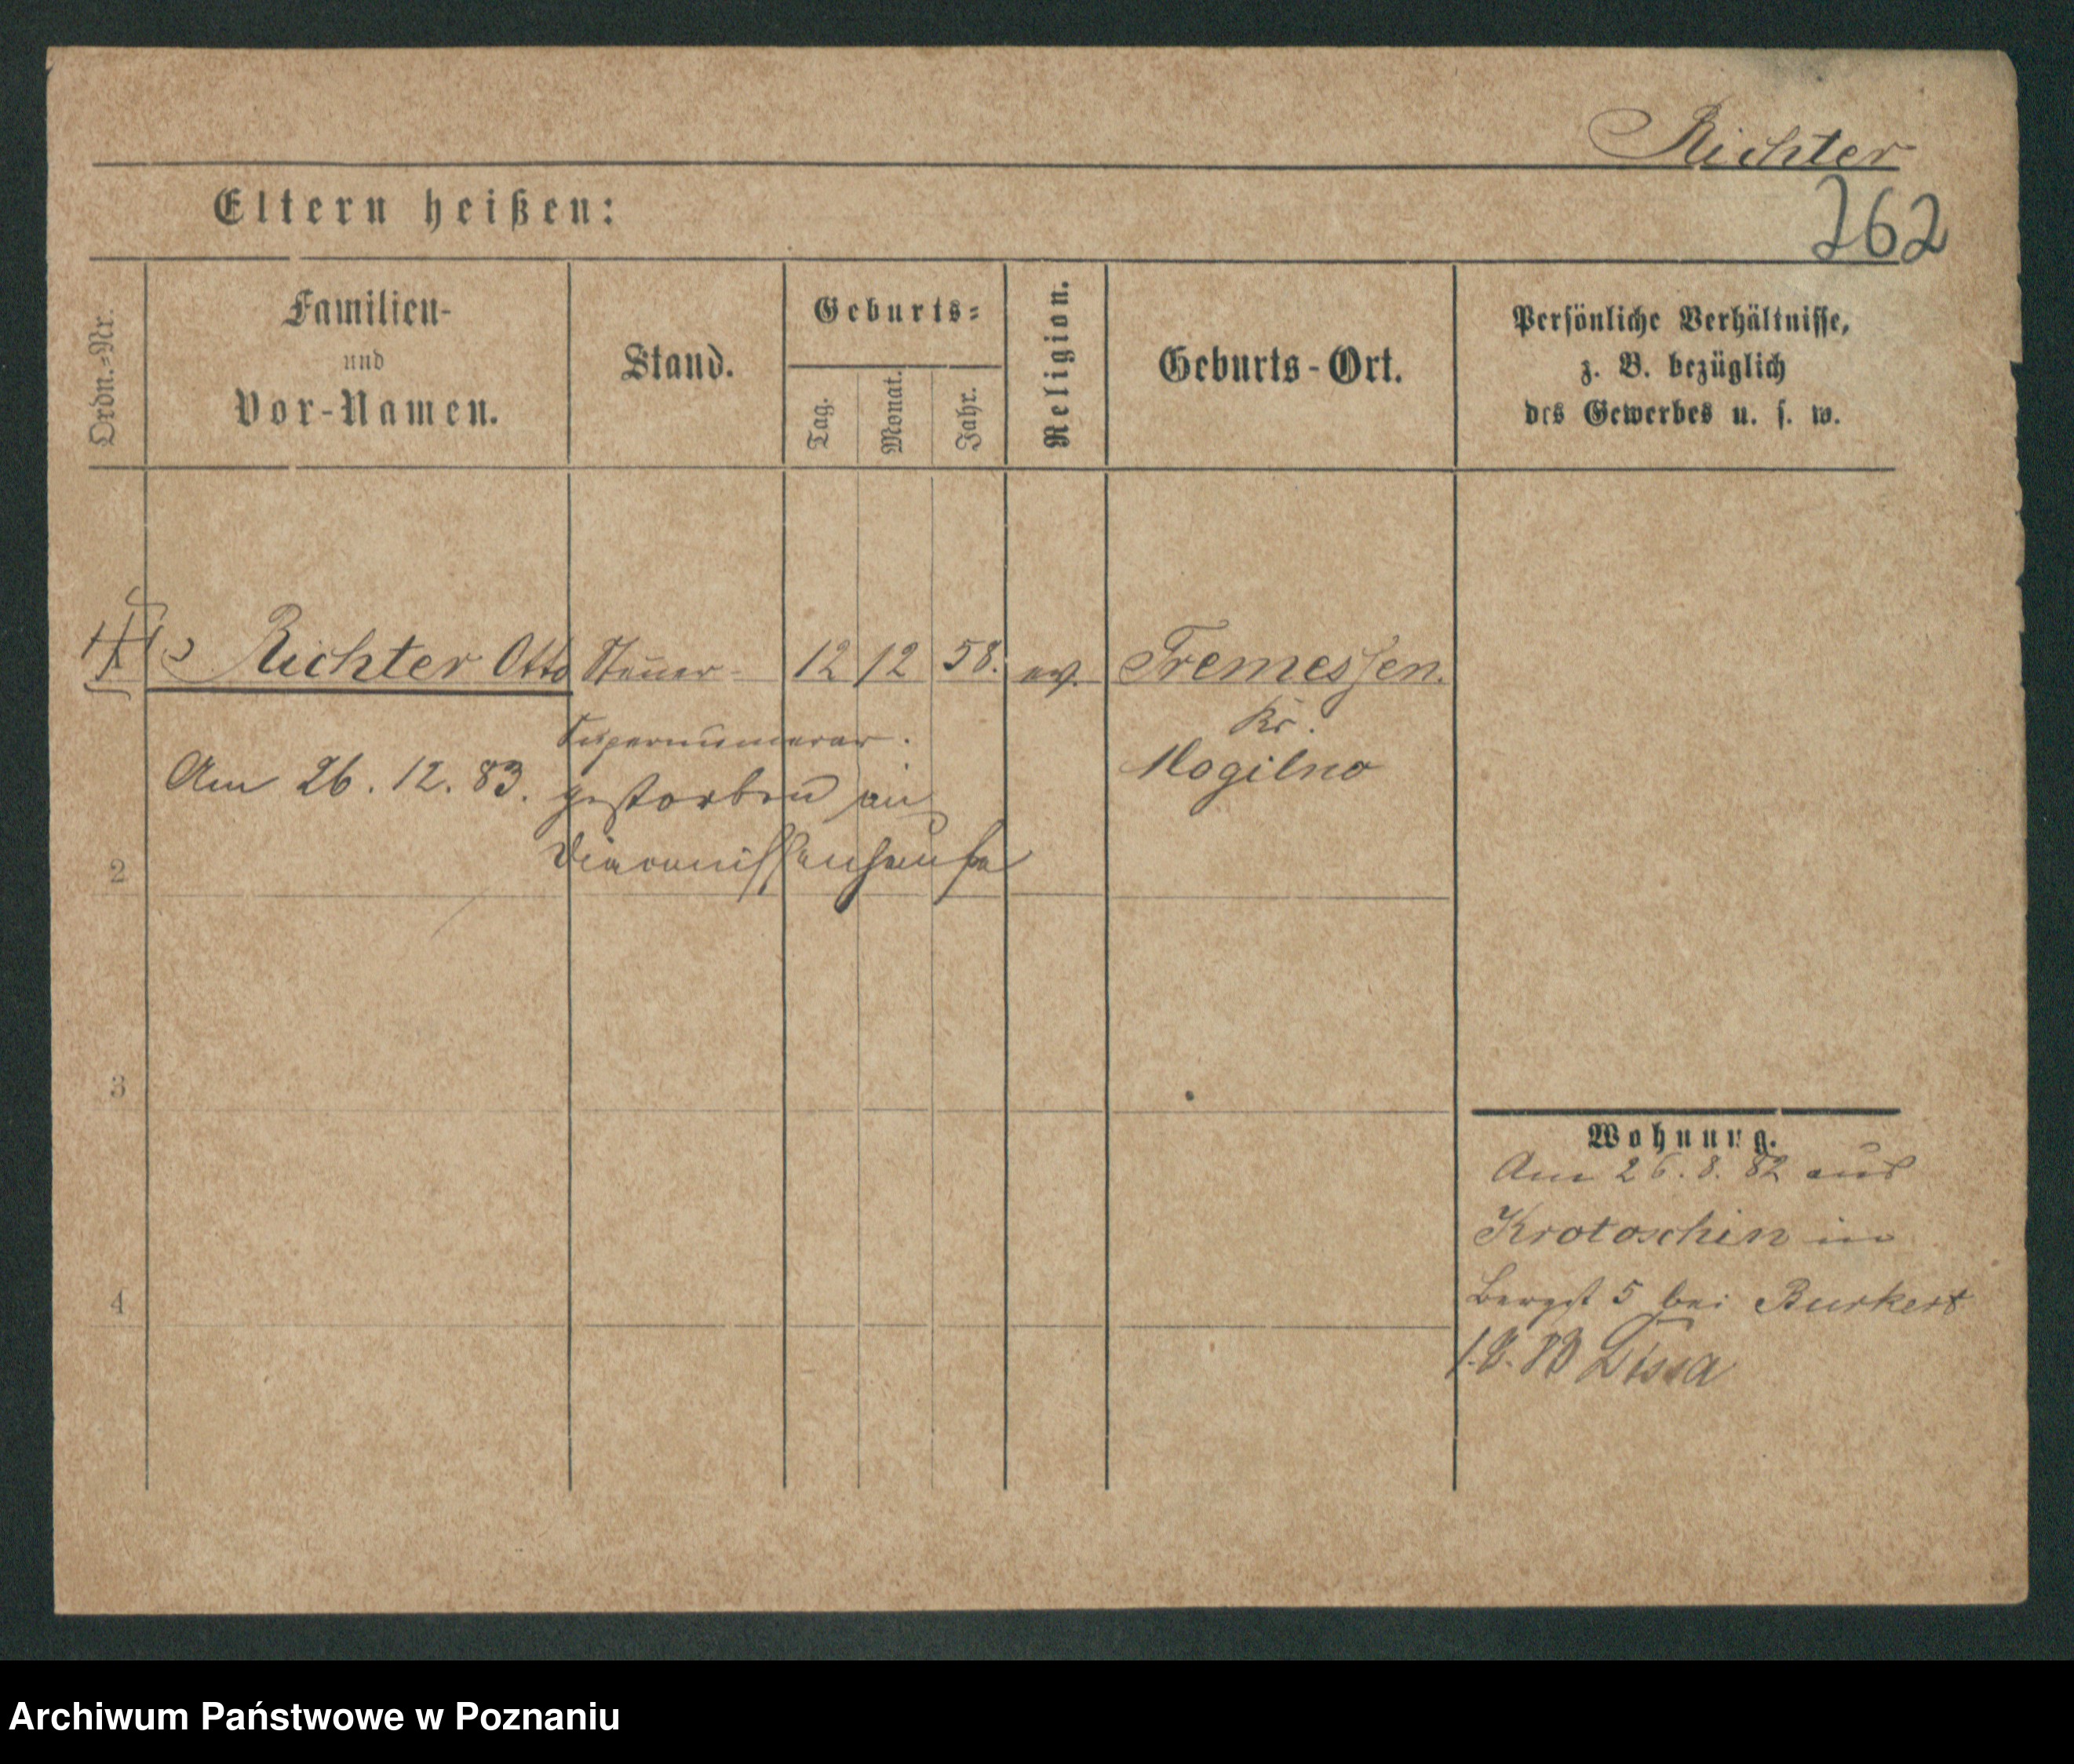 Richter
262
Eltern heißen:
Ordn.-Nr.
Familien-
und
Vor-Namen.
Stand.
Geburts-
Tag.
Monat.
Jahr.
Religion.
Geburts-Ort.
Persönliche Verhältnisse,
z. B. bezüglich
des Gewerbes u. s. w.
Richter Otto Steuer- 12 12 58. ev. Tremessen.
Supernumerar. Kr.
Mogilno
Am 26. 12. 83. gestorben in
Diaconissenhause
2
3
4
Wohnung.
Am 26. 8. 82 aus
Krotoschin in
Bergst 5 bei Burkert
Lissa
Archiwum Państwowe w Poznaniu